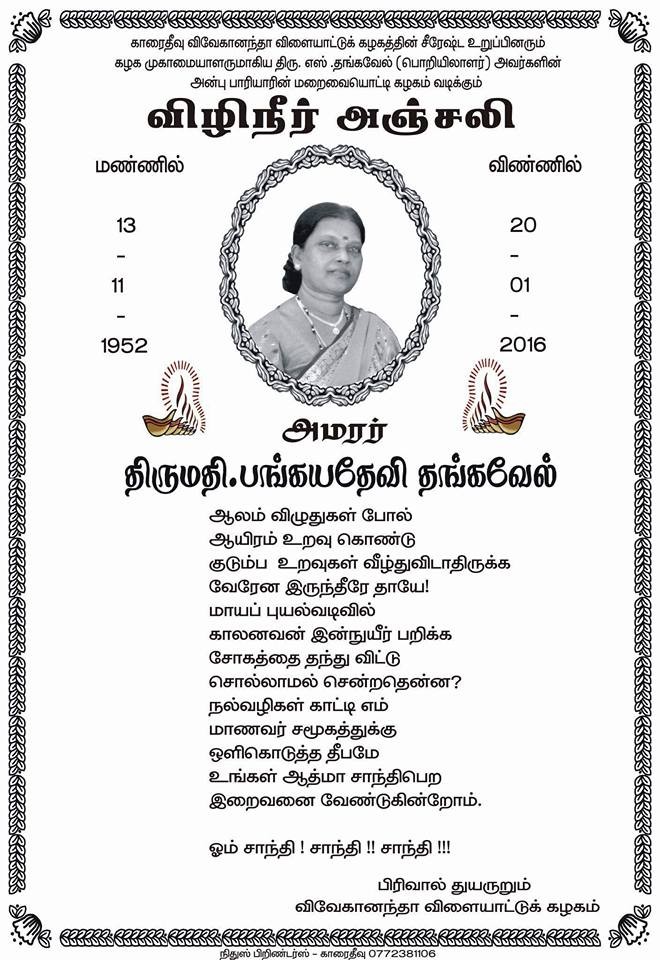 காரைதீவு விவேகானந்தா விளையாட்டுக் கழகத்தின் சிரேஷ்ட உறுப்பினரும்
கழக முகாமையாளருமாகிய திரு. எஸ் .தங்கவேல் (பொறியிலாளர்) அவர்களின்
அன்பு பாரியாரின் மறைவையொட்டி கழகம் வடிக்கும்
விழிநீர் அஞ்சலி
மண்ணில் விண்ணில்
13 20
- -
11 01
- -
1952 2016
அமரர்
திருமதி.பங்கயதேவி தங்கவேல்
ஆலம் விழுதுகள் போல்
ஆயிரம் உறவு கொண்டு
குடும்ப உறவுகள் வீழ்துவிடாதிருக்க
வேரேன இருந்தீரே தாயே!
மாயப் புயல்வடிவில்
காலனவன் இன்நுயீர் பறிக்க
சோகத்தை தந்து விட்டு
சொல்லாமல் சென்றதென்ன?
நல்வழிகள் காட்டி எம்
மாணவர் சமூகத்துக்கு
ஒளிகொடுத்த தீபமே
உங்கள் ஆத்மா சாந்திபெற
இறைவனை வேண்டுகின்றோம்.
ஓம் சாந்தி ! சாந்தி !! சாந்தி !!!
பிரிவால் துயருறும்
விவேகானந்தா விளையாட்டுக் கழகம்
நிதுஸ் பிறிண்டர்ஸ் - காரைதீவு 0772381106